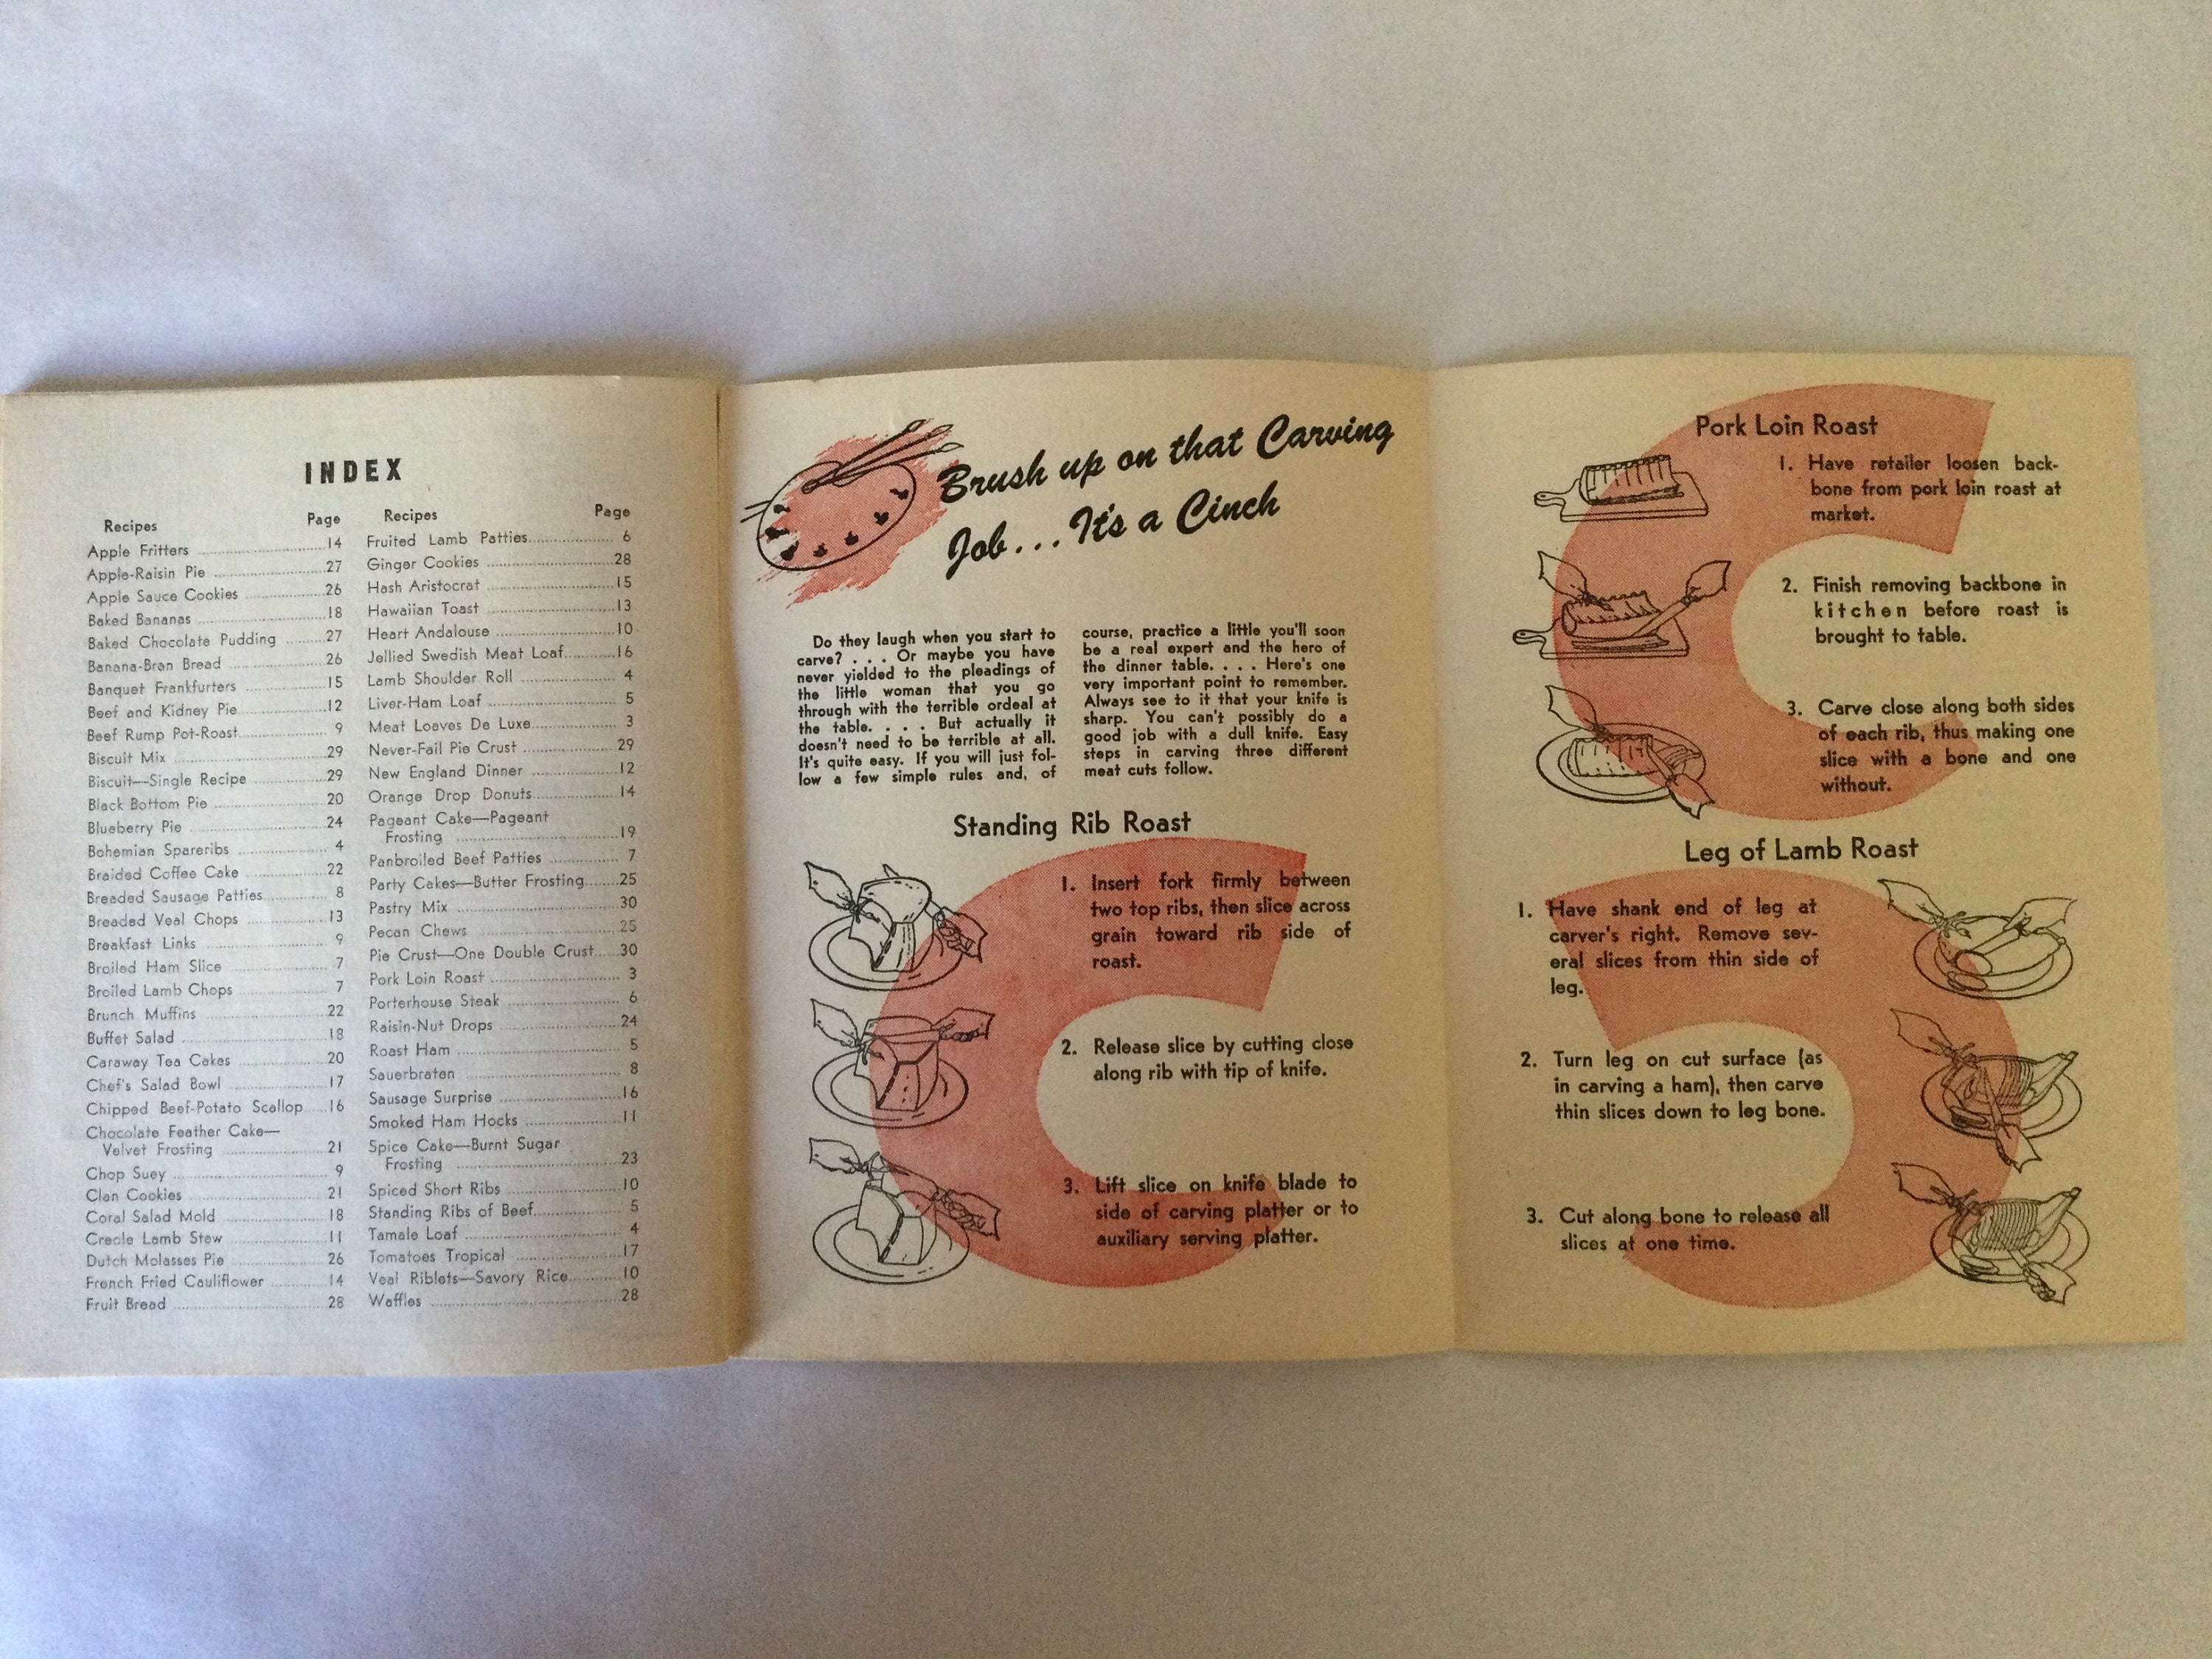 INDEX
Recipes Page
Apple Fritters 14
Apple-Raisin Pie 27
Apple Sauce Cookies 26
Baked Bananas 18
Baked Chocolate Pudding 27
Banana-Bran Bread 26
Banquet Frankfurters 15
Beef and Kidney Pie 12
Beef Rump Pot-Roast 9
Biscuit Mix 29
Biscuit—Single Recipe 29
Black Bottom Pie 20
Blueberry Pie 24
Bohemian Spareribs 4
Braided Coffee Cake 22
Breaded Sausage Patties 8
Breaded Veal Chops 13
Breakfast Links 9
Broiled Ham Slice 7
Broiled Lamb Chops 7
Brunch Muffins 22
Buffet Salad 18
Caraway Tea Cakes 20
Chef's Salad Bowl 17
Chipped Beef-Potato Scallop 16
Chocolate Feather Cake—
Velvet Frosting 21
Chop Suey 9
Clan Cookies 21
Coral Salad Mold 18
Creole Lamb Stew 11
Dutch Molasses Pie 26
French Fried Cauliflower 14
Fruit Bread 28
Recipes Page
Fruited Lamb Patties 6
Ginger Cookies 28
Hash Aristocrat 15
Hawaiian Toast 13
Heart Andalouse 10
Jellied Swedish Meat Loaf 16
Lamb Shoulder Roll 4
Liver-Ham Loaf 5
Meat Loaves De Luxe 3
Never-Fail Pie Crust 29
New England Dinner 12
Orange Drop Donuts 14
Pageant Cake—Pageant
Frosting 19
Panbroiled Beef Patties 7
Party Cakes—Butter Frosting 25
Pastry Mix 30
Pecan Chews 25
Pie Crust—One Double Crust 30
Pork Loin Roast 3
Porterhouse Steak 6
Raisin-Nut Drops 24
Roast Ham 5
Sauerbraten 8
Sausage Surprise 16
Smoked Ham Hocks 11
Spice Cake—Burnt Sugar
Frosting 23
Spiced Short Ribs 10
Standing Ribs of Beef 5
Tamale Loaf 4
Tomatoes Tropical 17
Veal Riblets—Savory Rice 10
Waffles 28
Brush up on that Carving
Job...It's a Cinch
Do they laugh when you start to
carve? . . . Or maybe you have
never yielded to the pleadings of
the little woman that you go
through with the terrible ordeal at
the table. . . . But actually it
doesn't need to be terrible at all.
It's quite easy. If you will just fol-
low a few simple rules and, of
course, practice a little you'll soon
be a real expert and the hero of
the dinner table. . . . Here's one
very important point to remember.
Always see to it that your knife is
sharp. You can't possibly do a
good job with a dull knife. Easy
steps in carving three different
meat cuts follow.
Standing Rib Roast
1. Insert fork firmly between
two top ribs, then slice across
grain toward rib side of
roast.
2. Release slice by cutting close
along rib with tip of knife.
3. Lift slice on knife blade to
side of carving platter or to
auxiliary serving platter.
Pork Loin Roast
1. Have retailer loosen back-
bone from pork loin roast at
market.
2. Finish removing backbone in
kitchen before roast is
brought to table.
3. Carve close along both sides
of each rib, thus making one
slice with a bone and one
without.
Leg of Lamb Roast
1. Have shank end of leg at
carver's right. Remove sev-
eral slices from thin side of
leg.
2. Turn leg on cut surface (as
in carving a ham), then carve
thin slices down to leg bone.
3. Cut along bone to release all
slices at one time.